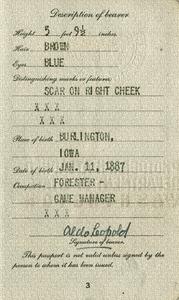 Description of bearer
Height 5 feet 9½ inches.
Hair BROWN
Eyes BLUE
Distinguishing marks or features:
SCAR ON RIGHT CHEEK
X X X
X X X
Place of birth BURLINGTON,
IOWA
Date of birth JAN. 11, 1887
Occupation FORESTER -
GAME MANAGER
X X X
Aldo Leopold
Signature of bearer.
This passport is not valid unless signed by the
person to whom it has been issued.
3